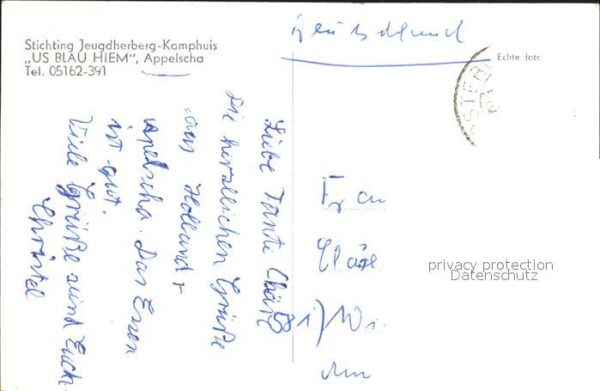 Stichting Jeugdherberg-Kamphuis
„US BLAU HIEM", Appelscha
Tel. 05162-391
Echte foto
Deutschland
Liebe Tante
Die herzlichen Grüße
aus Holland +
Apelscha. Das Essen
ist gut.
Viele Grüße send Euch
Christel
Frau
581) Wi
privacy protection
Datenschutz